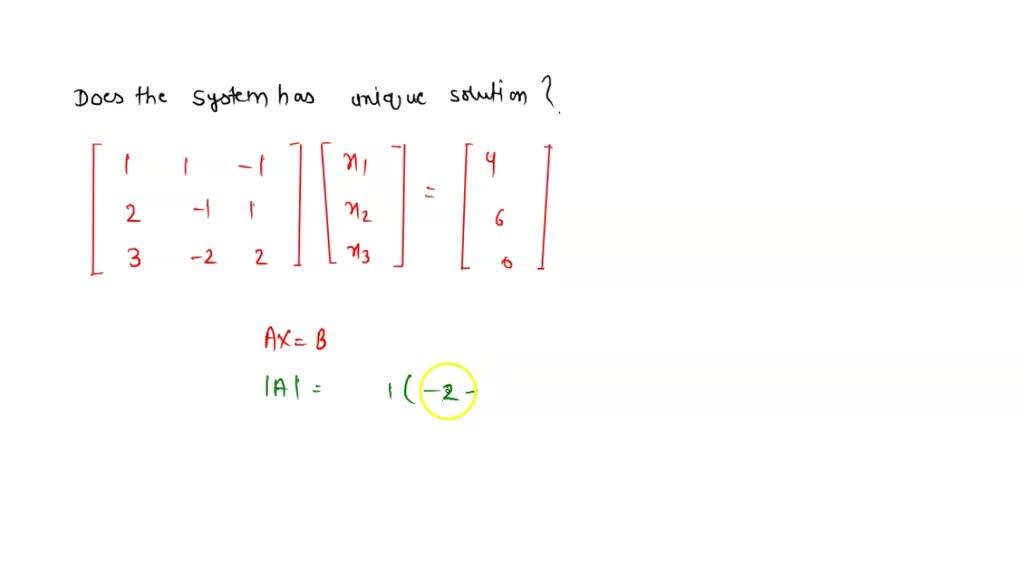 Does the system has unique solution ?
[ 1 1 -1 ] [ x1 ] = [ 4 ]
[ 2 -1 1 ] [ x2 ] [ 6 ]
[ 3 -2 2 ] [ x3 ] [ 0 ]
AX = B
|A| = 1 ( -2 -